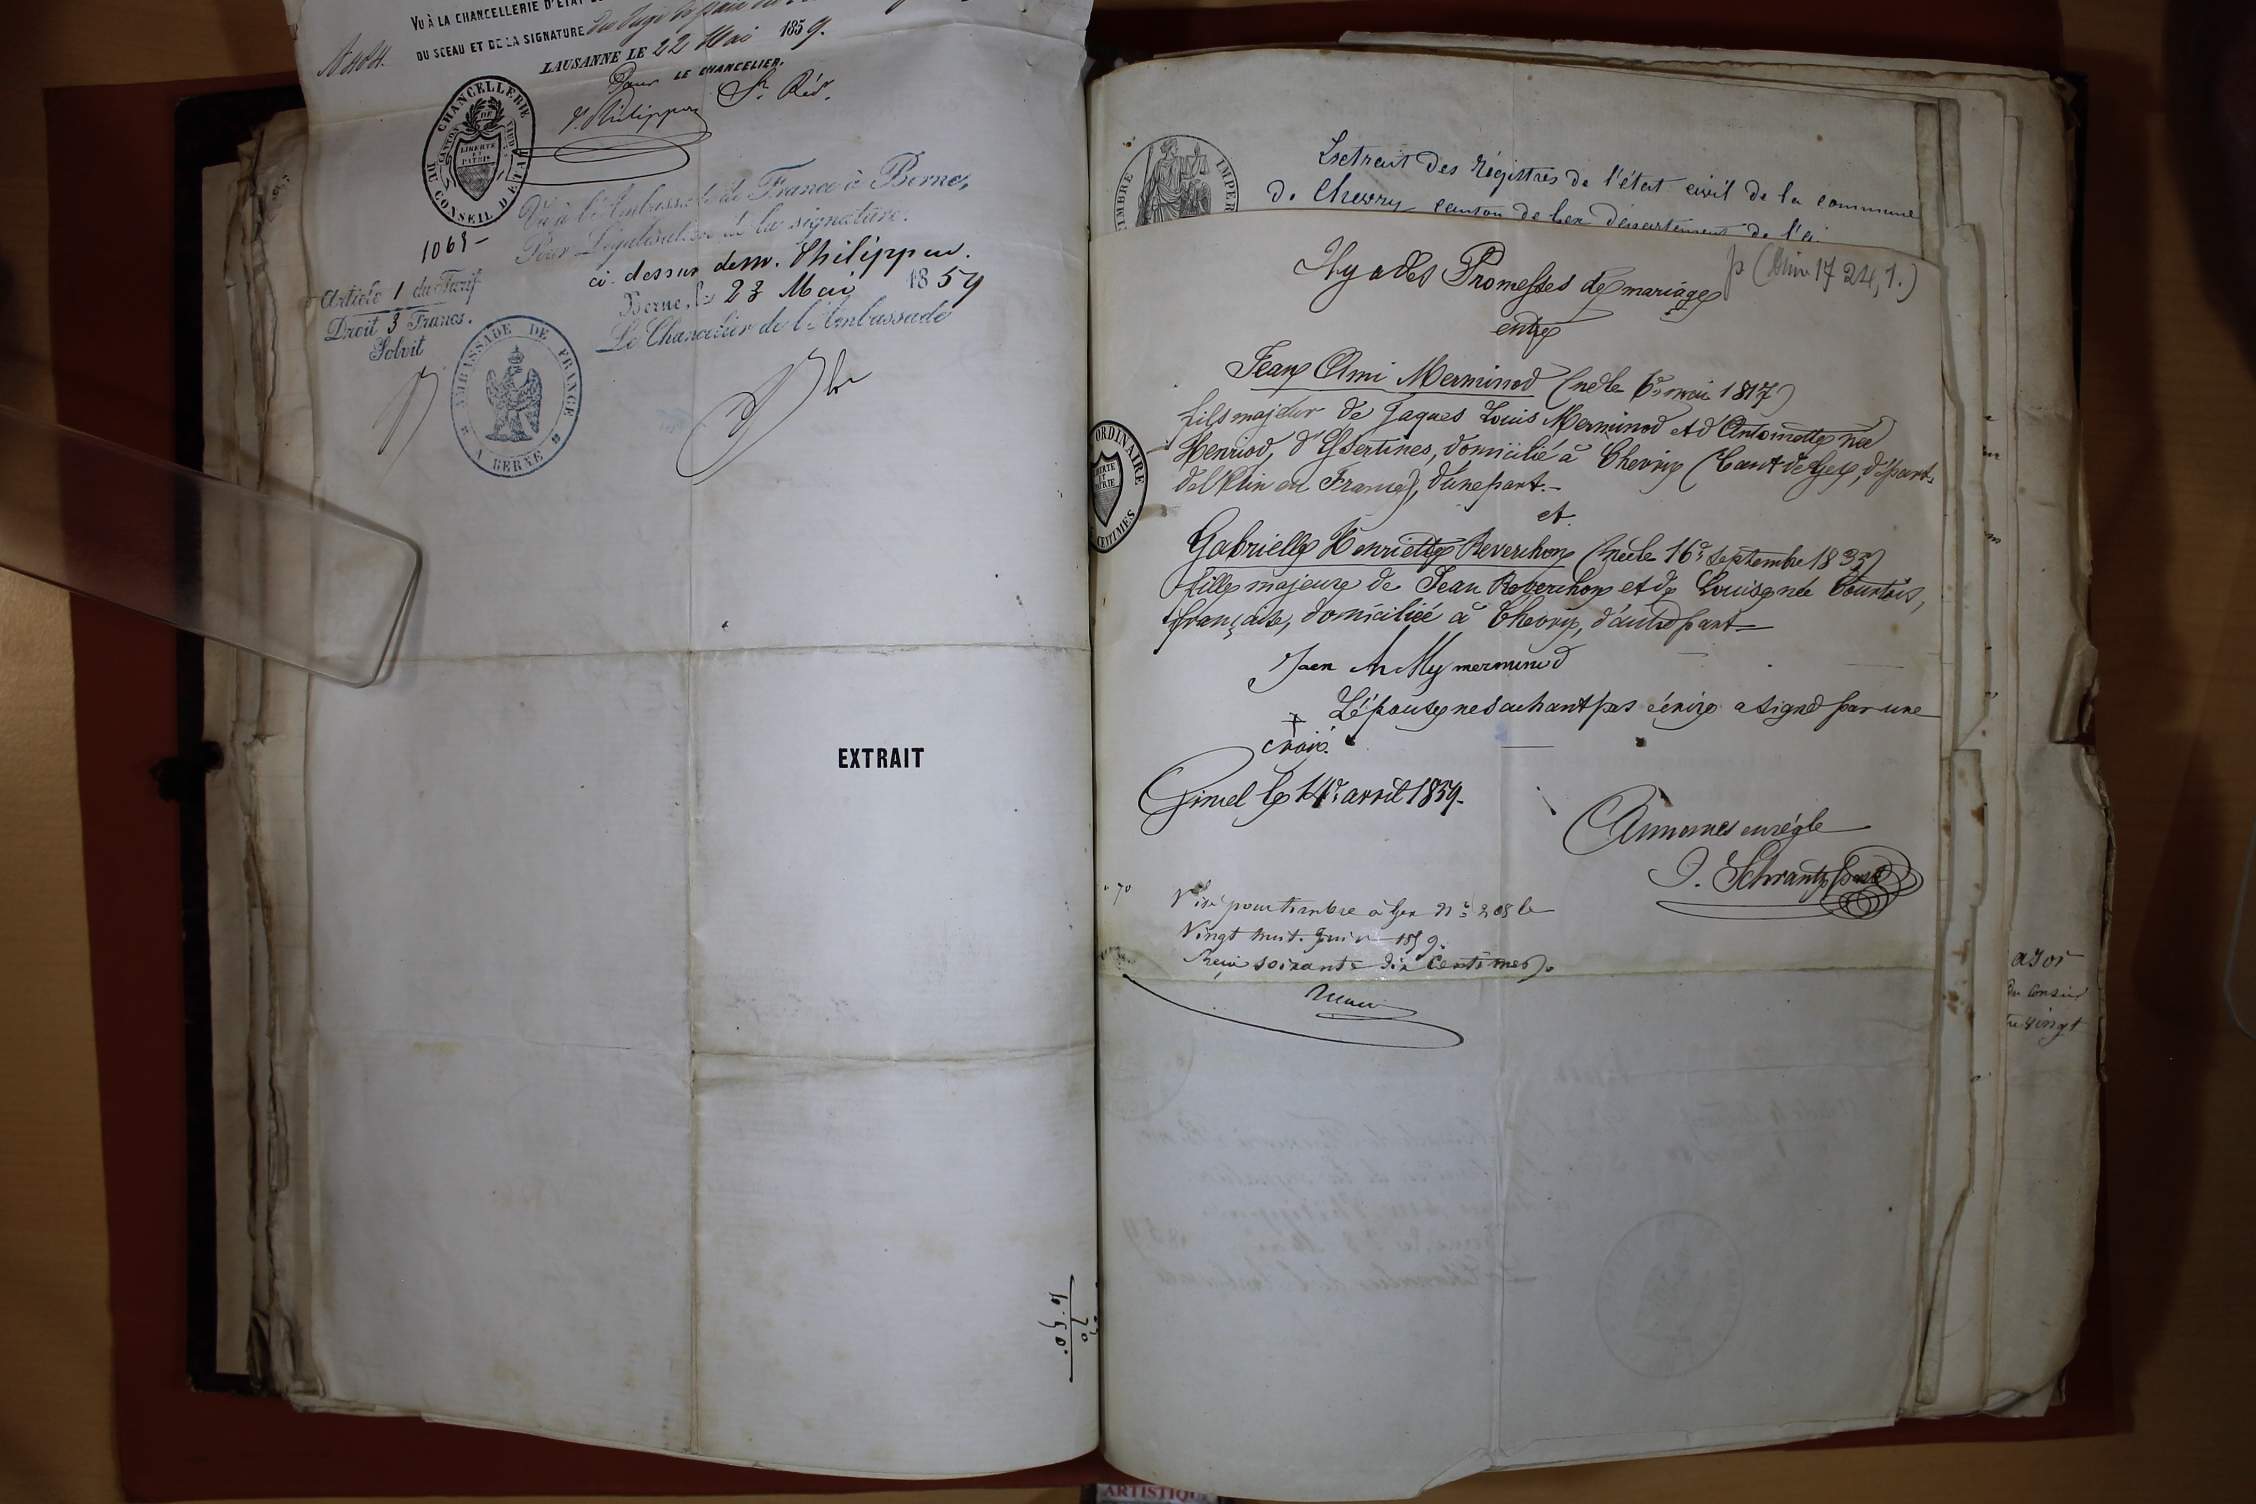 VU À LA CHANCELLERIE D'ÉTAT
DU SCEAU ET DE LA SIGNATURE du Juge de paix
LAUSANNE LE 22 Mai 1859.
Pour LE CHANCELIER,
CHANCELLERIE DU CONSEIL D'ETAT
CANTON DE VAUD
LIBERTÉ ET PATRIE
1061-
Vu à l'Ambassade de France à Berne,
Pour Légalisation de la signature.
ci dessus de m. Philippon.
Berne, le 23 Mai 1859
Le Chancelier de l'Ambassade
Article 1 du Tarif
Droit 3 Francs.
Solvit
AMBASSADE DE FRANCE A BERNE
EXTRAIT
70
10.50
TIMBRE IMPER
Extrait des Régistres de l'état civil de la commune
de Chevry canton de Gex département de l'
Il y a des Promesses de mariage
entre
Jean Ami Merminod (né le 6e mai 1817)
fils majeur de Jaques Louis Merminod et d'Antoinette née
Henriod, d'Ysertines, domicilié à Chevry (Cant de Gex, départ.
de l'Ain en France), d'une part.-
et
Gabrielle Henriette Reverchon (née le 16e septembre 1833)
fille majeure de Jean Reverchon et de Louise née Courtois,
française, domiciliée à Chevry, d'autre part
ORDINAIRE
LIBERTE ET PATRIE
CENTIMES
L'épouse ne sachant pas écrire a signé par une
croix.
Gimel le 14e avril 1859.
Annonces en règle
Visé pour timbre à Gex No 208 le
Vingt huit Juin 1859.
Reçu soixante dix centimes.
ARTISTIQUE